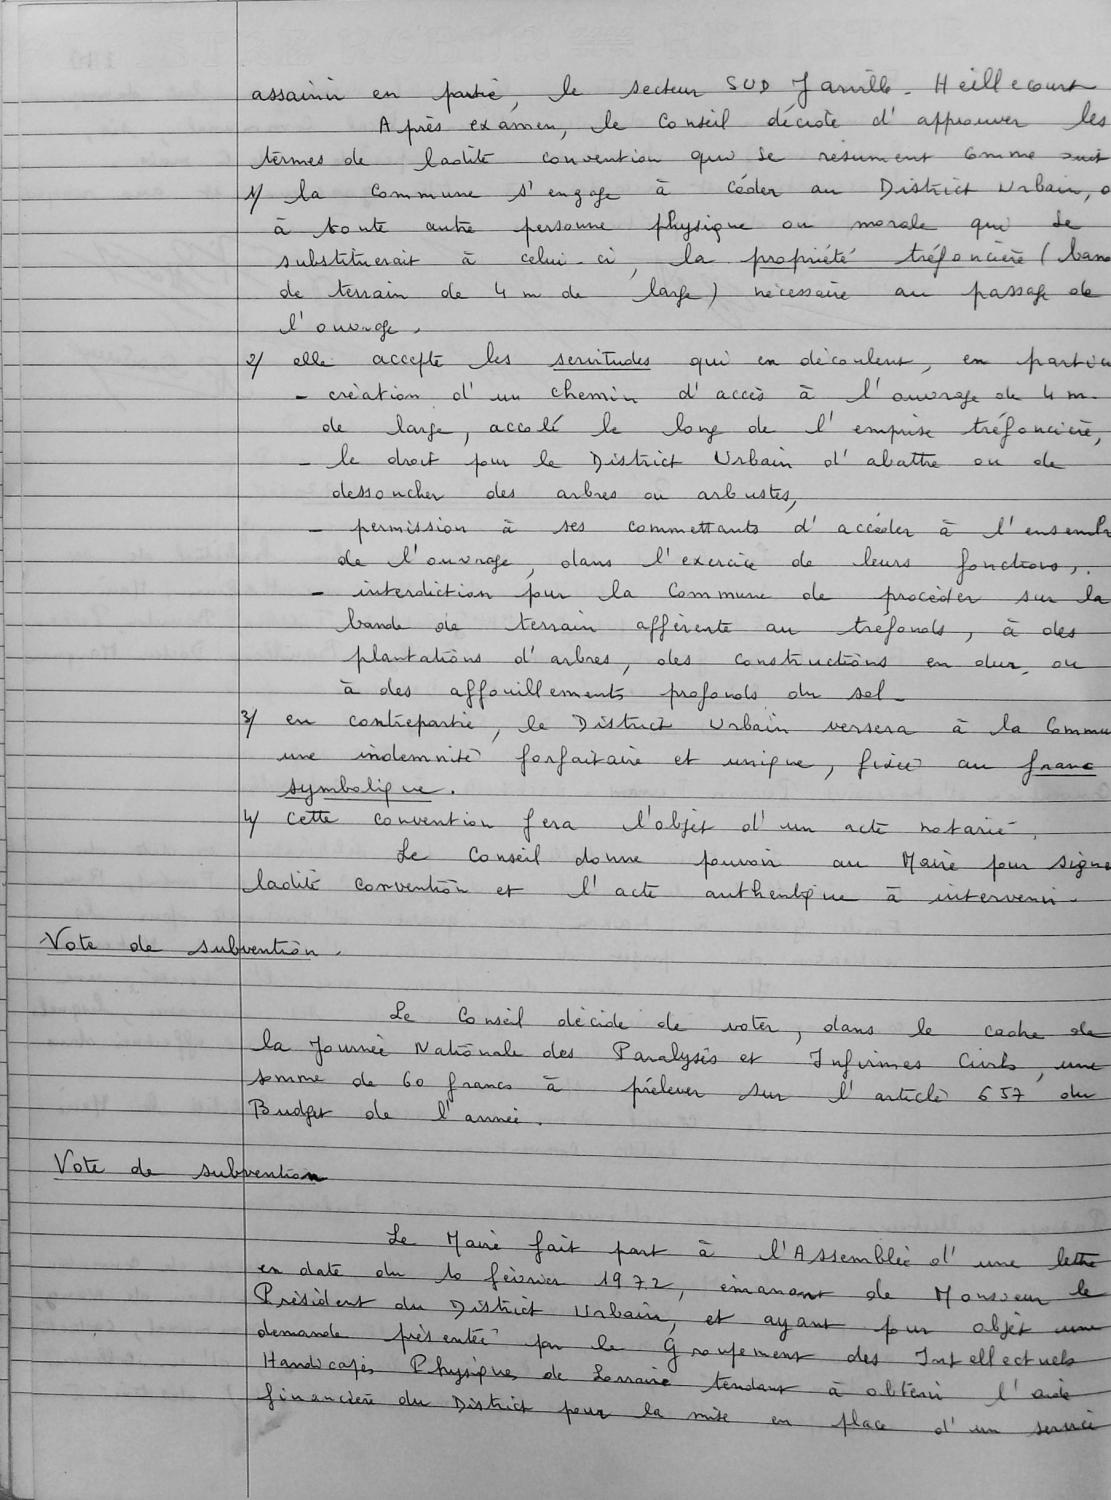 assainir en partie, le secteur SUD Jarville - Heillecourt
Après examen, le Conseil décide d'approuver les
termes de ladite convention qui se résument comme suit
1/ la Commune s'engage à céder au District Urbain, o
à toute autre personne physique ou morale qui se
substituerait à celui-ci, la propriété tréfoncière (ban
de terrain de 4 m de large) nécessaire au passage de
l'ouvrage.
2/ elle accepte les servitudes qui en découlent, en particu
- création d'un chemin d'accès à l'ouvrage de 4 m.
de large, accolé le long de l'emprise tréfoncière,
- le droit pour le District Urbain d'abattre ou de
dessoucher des arbres ou arbustes,
- permission à ses commettants d'accéder à l'ensembl
de l'ouvrage, dans l'exercice de leurs fonctions,.
- interdiction pour la Commune de procéder sur la
bande de terrain afférente au tréfonds, à des
plantations d'arbres, des constructions en dur, ou
à des affouillements profonds du sol -
3/ en contrepartie, le District Urbain versera à la Commu
une indemnité forfaitaire et unique, fixée au franc
symbolique.
4/ cette convention fera l'objet d'un acte notarié.
Le Conseil donne pouvoir au Maire pour signe
ladite convention et l'acte authentique à intervenir -
Vote de subvention.
Le Conseil décide de voter, dans le cadre de
la Journée Nationale des Paralysés et Infirmes Civils, une
somme de 60 francs à prélever sur l'article 657 du
Budget de l'année.
Vote de subvention
Le Maire fait part à l'Assemblée d'une lettre
en date du 10 février 1972, émanant de Monsieur le
Président du District Urbain, et ayant pour objet une
demande présentée par le Groupement des Intellectuels
Handicapés Physiques de Lorraine tendant à obtenir l'aide
financière du District pour la mise en place d'un service